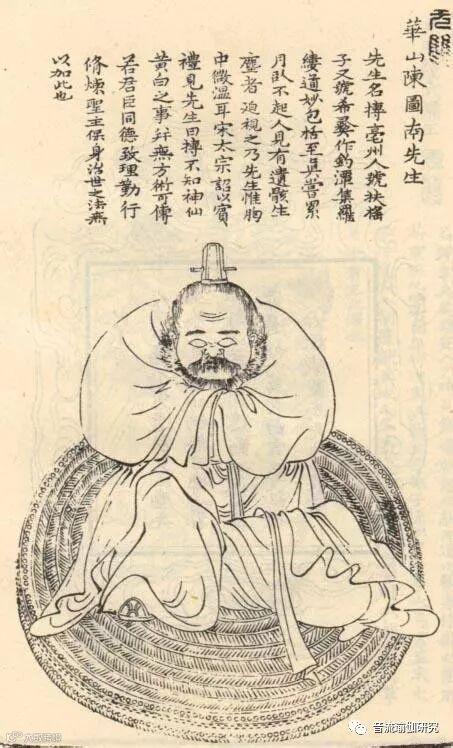 華山陳圖南先生
先生名摶亳州人號扶搖
子又號希夷作釣潭集羅
縷道妙包括至真嘗累
月臥不起人見有遺骸生
塵者迫視之乃先生惟胸
中微溫耳宋太宗詔以賓
禮見先生曰摶不知神仙
黃白之事幷無方術可傳
若君臣同德致理勤行
脩煉聖主保身治世之法無
以加此也
音流瑜伽研究